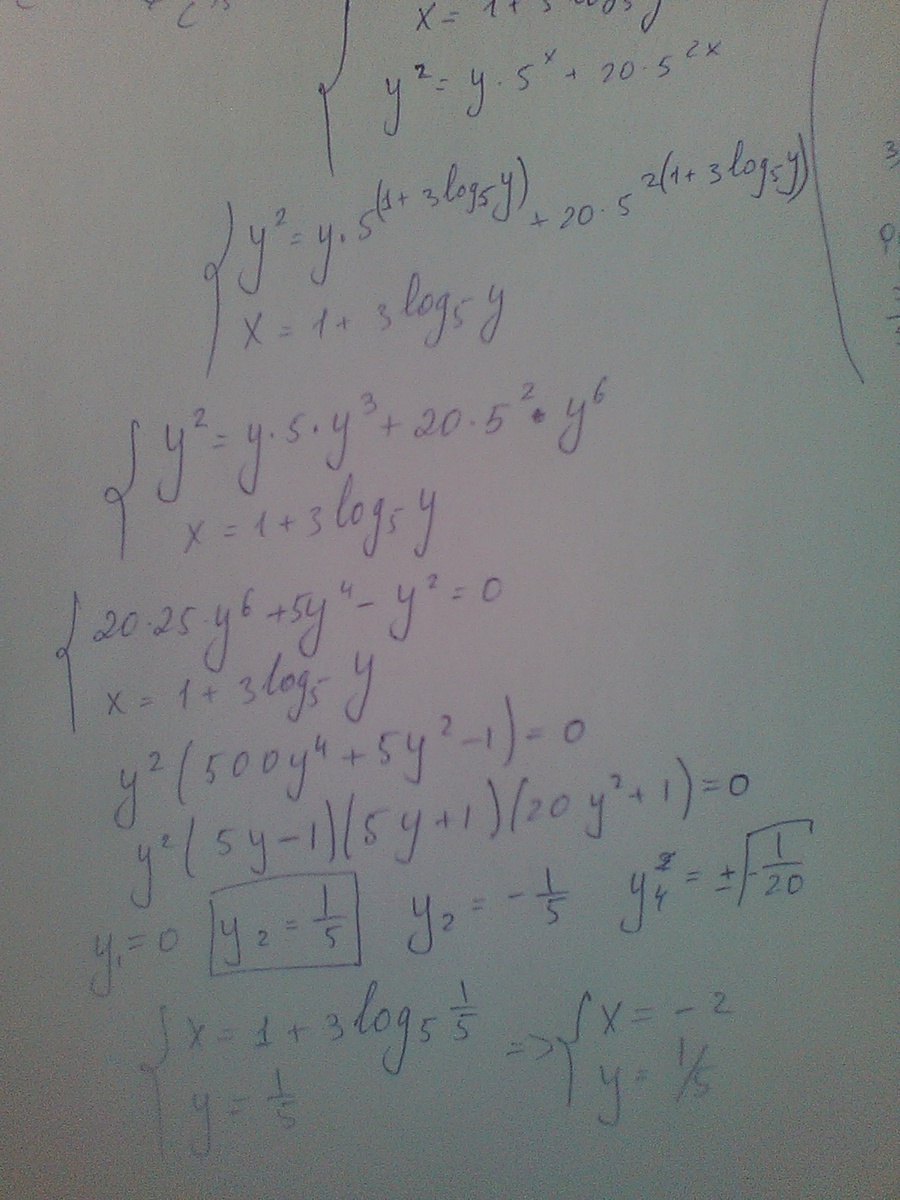 x = 1 + 3 log₅ y
y² = y · 5ˣ + 20 · 5²ˣ
y² = y · 5^(1 + 3 log₅ y) + 20 · 5^2(1 + 3 log₅ y)
x = 1 + 3 log₅ y
y² = y · 5 · y³ + 20 · 5² · y⁶
x = 1 + 3 log₅ y
20 · 25 · y⁶ + 5y⁴ - y² = 0
x = 1 + 3 log₅ y
y² (500y⁴ + 5y² - 1) = 0
y² (5y - 1)(5y + 1)(20y² + 1) = 0
y₁ = 0 y₂ = 1/5 y₂ = - 1/5 y₄ = ±√-1/20
x = 1 + 3 log₅ 1/5 => x = - 2
y = 1/5 y = 1/5